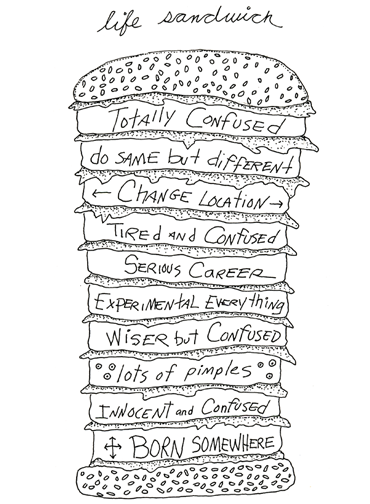 life sandwich
Totally Confused
do SAME but different
← Change Location →
Tired and Confused
Serious Career
Experimental Everything
Wiser but Confused
lots of pimples
Innocent and Confused
Born Somewhere